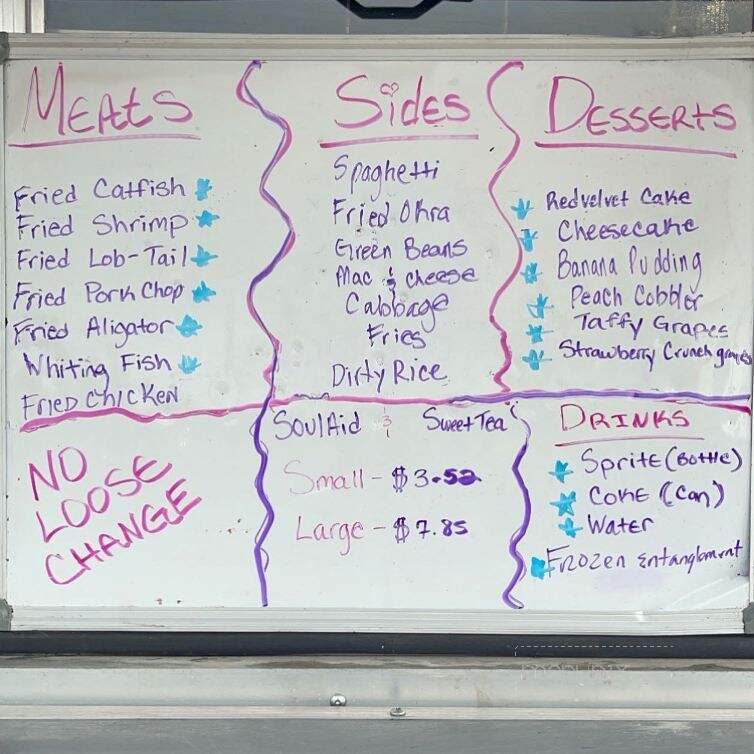 MEAtS
Fried Catfish
Fried Shrimp
Fried Lob-Tail
Fried Pork Chop
Fried Aligator
Whiting Fish
FRiED CHICKEN
Sides
Spaghetti
Fried Okra
Green Beans
Mac & cheese
Cabbage
Fries
Dirty Rice
DESSERTS
Redvelvet Cake
Cheesecake
Banana Pudding
Peach Cobbler
Taffy Grapes
Strawberry Crunch grapes
NO
LOOSE
CHANGE
Soul Aid & Sweet Tea
Small - $3.52
Large - $7.85
DRINKS
Sprite (Bottle)
Coke (Can)
Water
Frozen Entanglement